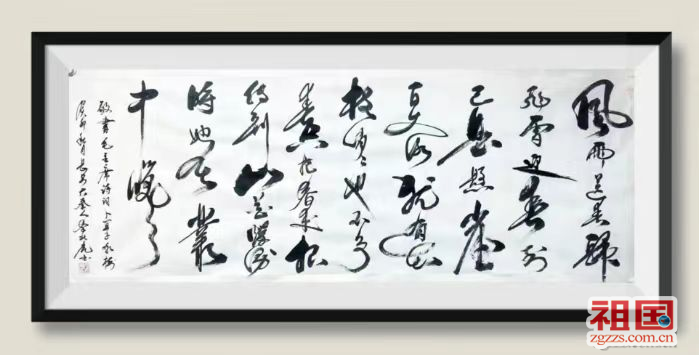 風雨送春歸
飛雪迎春到
已是懸崖
百丈冰犹有花
枝俏俏也不争
春只把春来报
待到山花爛漫
時她在叢
中笑
敬書毛主席詩词卜算子咏梅
癸卯
祖国
zgzzs.com.cn